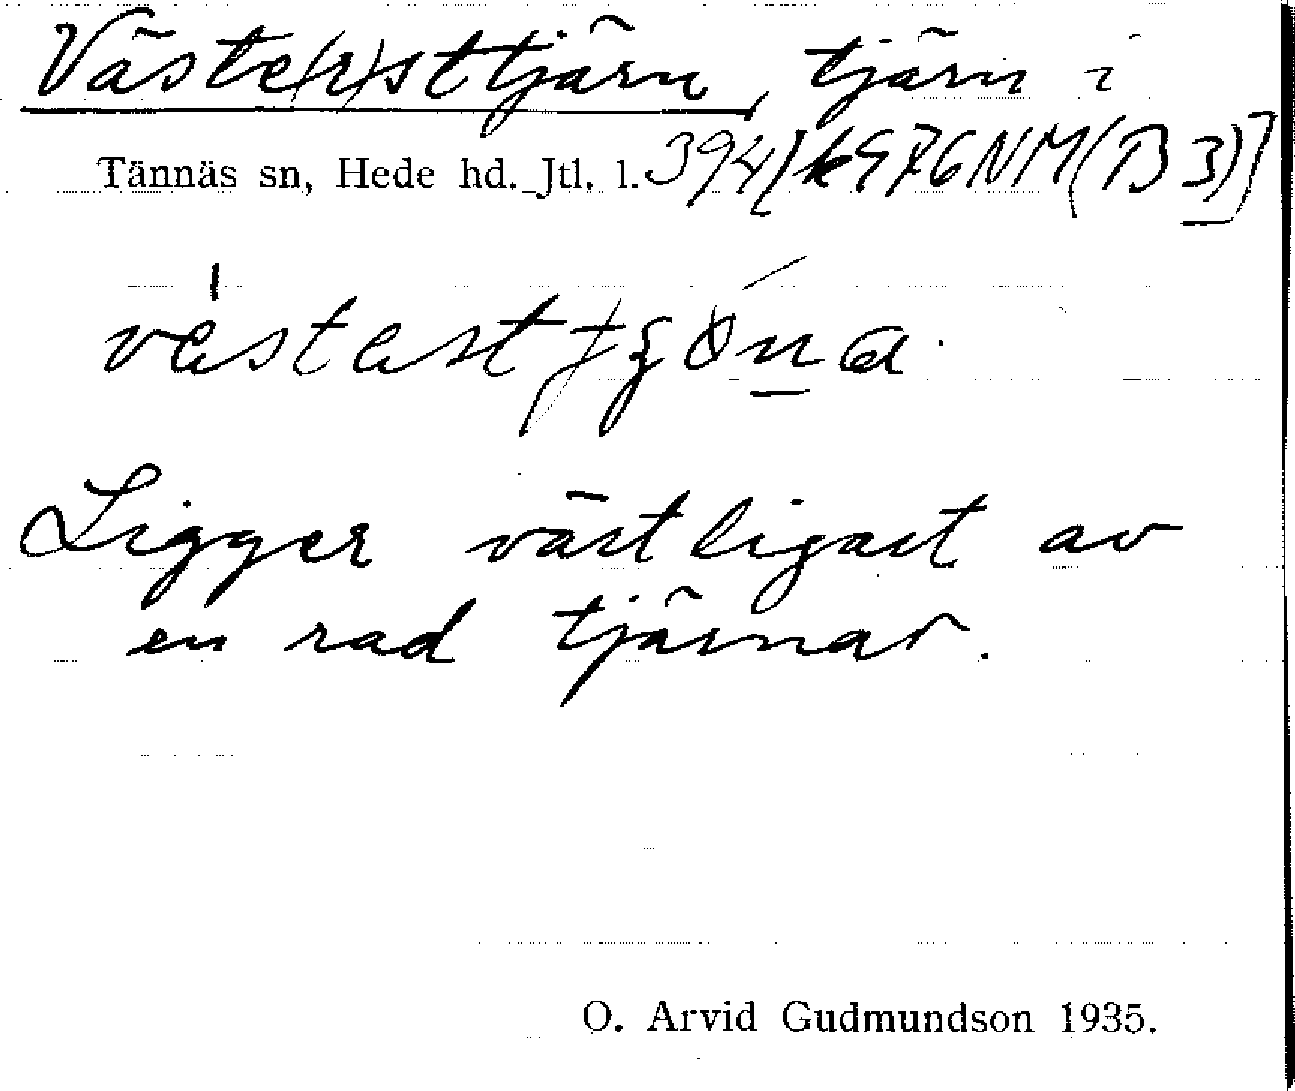 Väste(r)sttjärn, tjärn i
Tännäs sn, Hede hd. Jtl. l. 394
Ligger västligast av
en rad tjärnar.
O. Arvid Gudmundson 1935.